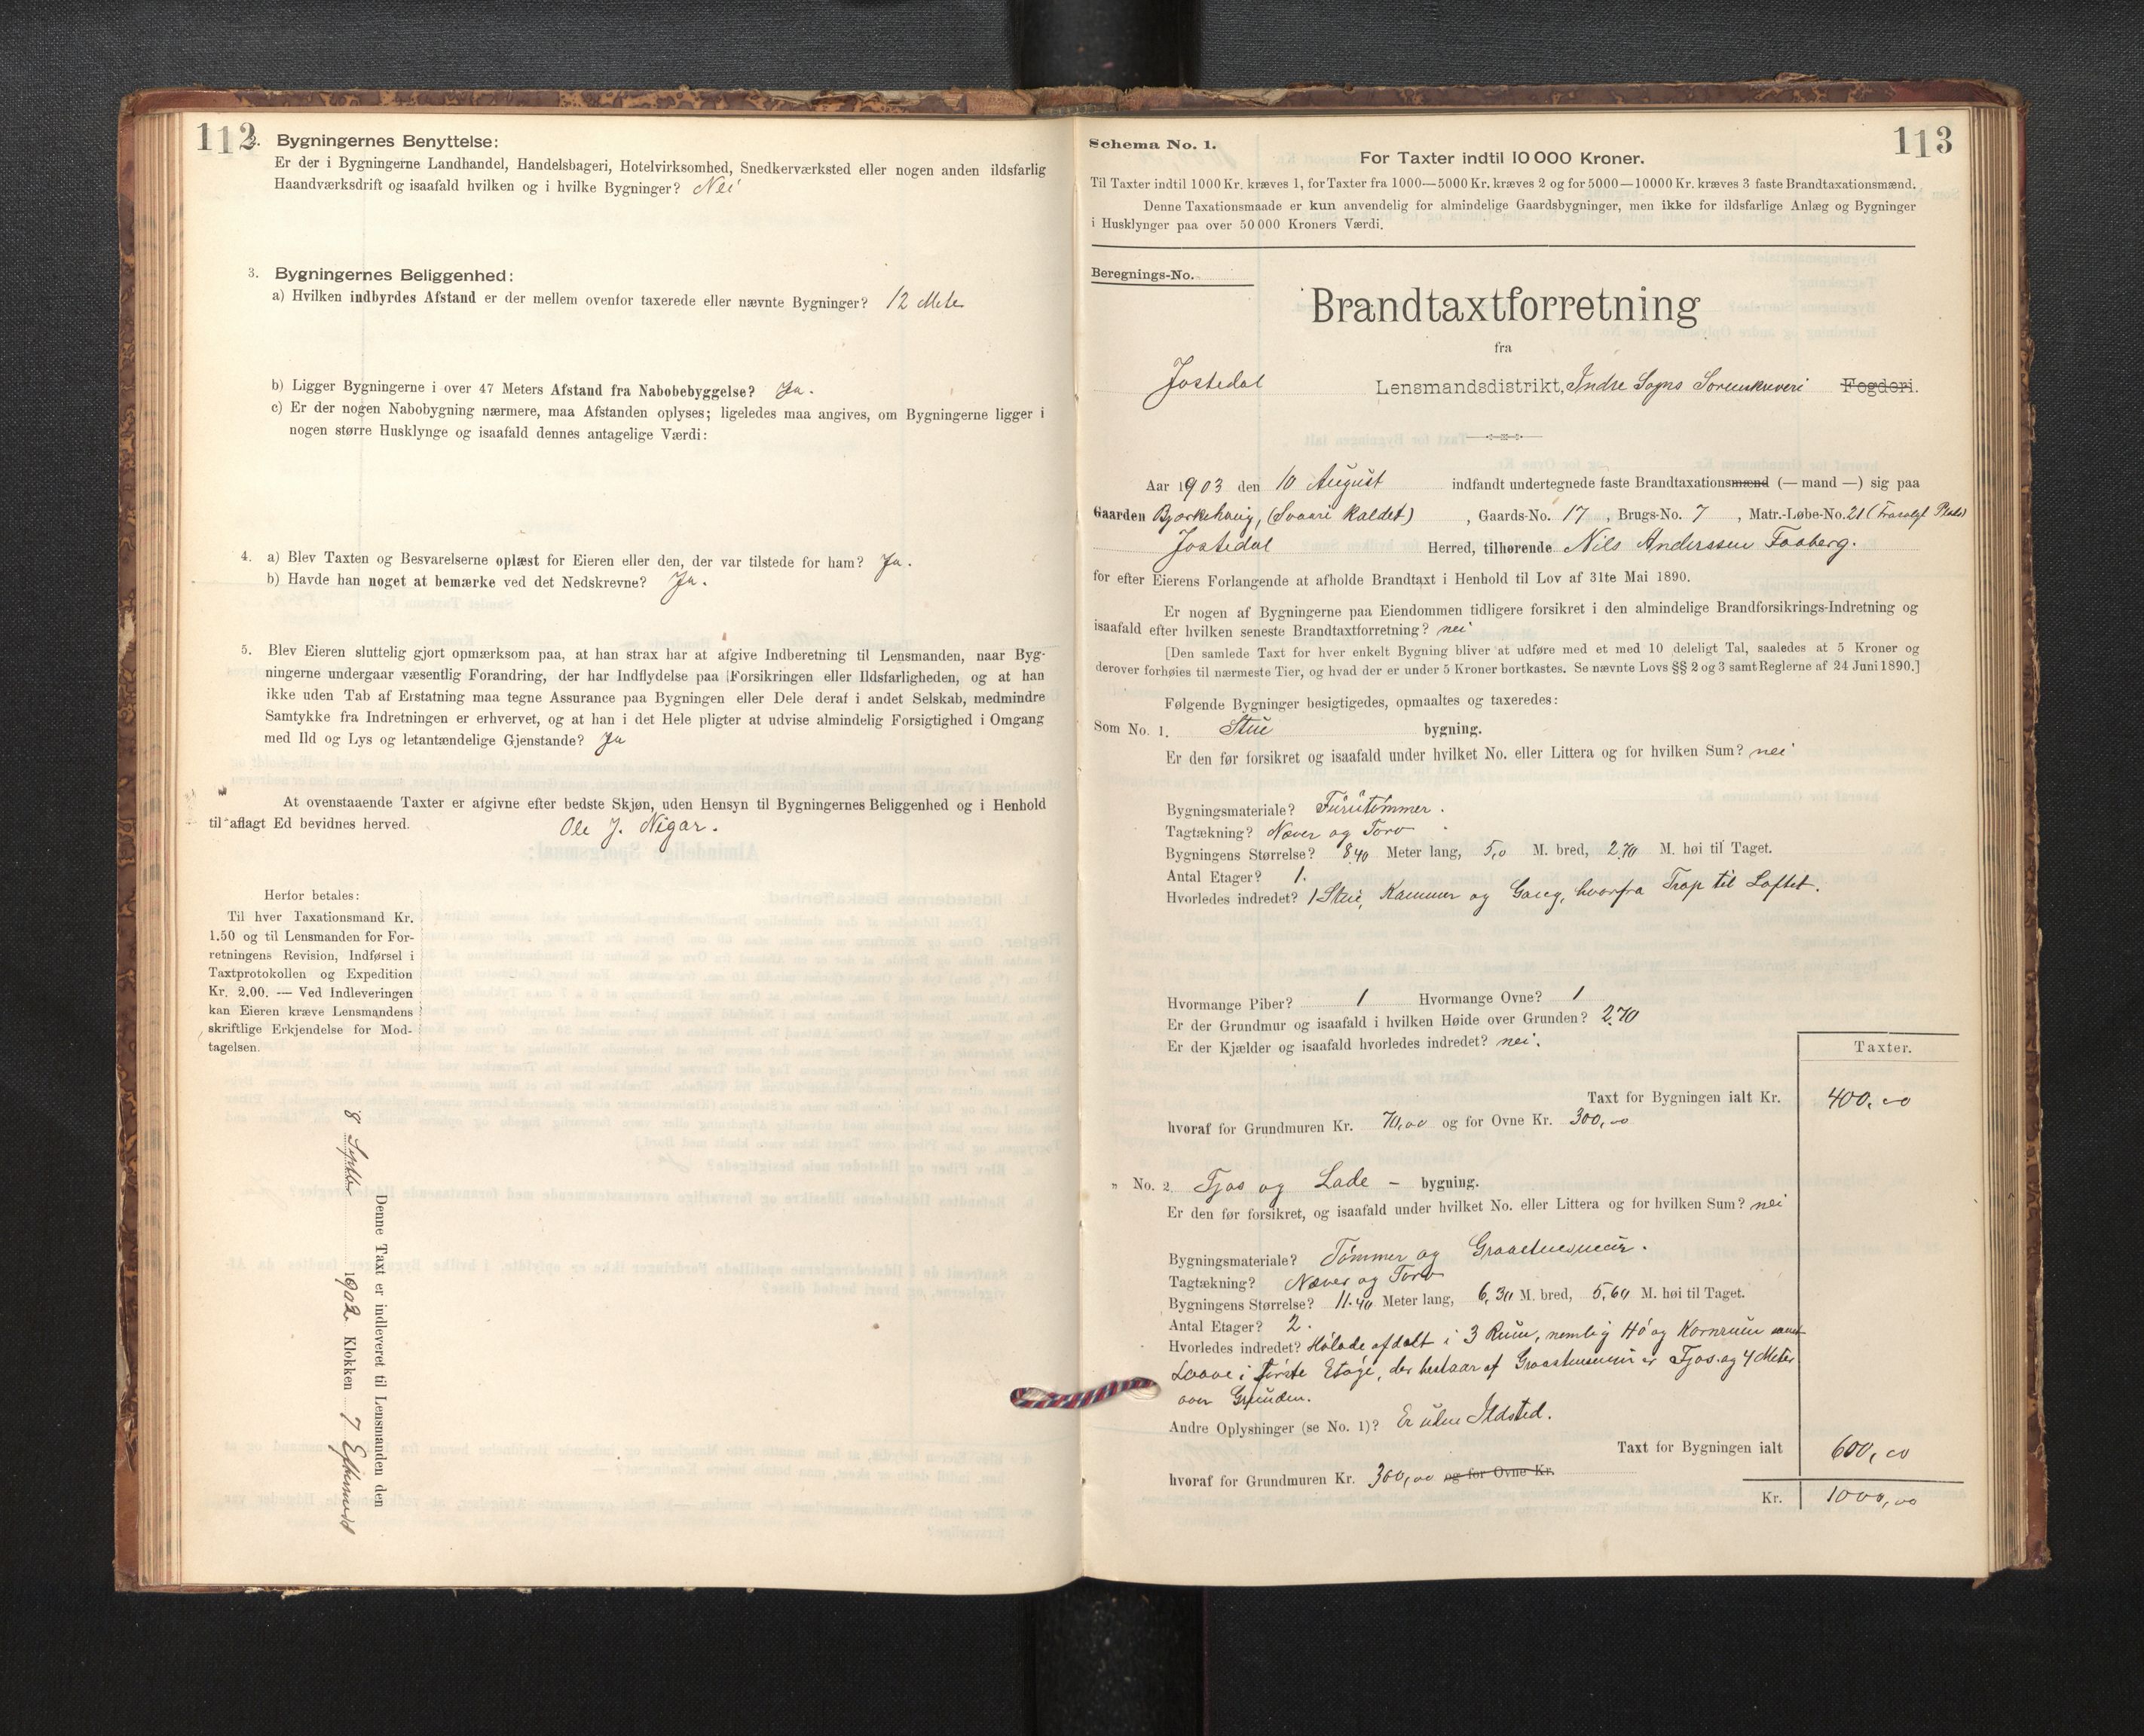 112
2. Bygningernes Benyttelse:
Er der i Bygningerne Landhandel, Handelsbageri, Hotelvirksomhed, Snedkerværksted eller nogen anden ildsfarlig
Haandværksdrift og isaafald hvilken og i hvilke Bygninger? Nei
3. Bygningernes Beliggenhed:
a) Hvilken indbyrdes Afstand er der mellem ovenfor taxerede eller nævnte Bygninger? 12 Meter
b) Ligger Bygningerne i over 47 Meters Afstand fra Nabobebyggelse? Ja.
c) Er der nogen Nabobygning nærmere, maa Afstanden oplyses; ligeledes maa angives, om Bygningerne ligger i
nogen større Husklynge og isaafald dennes antagelige Værdi:
4. a) Blev Taxten og Besvarelserne oplæst for Eieren eller den, der var tilstede for ham? Ja.
b) Havde han noget at bemærke ved det Nedskrevne? Ja.
5. Blev Eieren sluttelig gjort opmærksom paa, at han strax har at afgive Indberetning til Lensmanden, naar Byg-
ningerne undergaar væsentlig Forandring, der har Indflydelse paa Forsikringen eller Ildsfarligheden, og at han
ikke uden Tab af Erstatning maa tegne Assurance paa Bygningen eller Dele deraf i andet Selskab, medmindre
Samtykke fra Indretningen er erhvervet, og at han i det Hele pligter at udvise almindelig Forsigtighed i Omgang
med Ild og Lys og letantændelige Gjenstande? Ja
At ovenstaaende Taxter er afgivne efter bedste Skjøn, uden Hensyn til Bygningernes Beliggenhed og i Henhold
til aflagt Ed bevidnes herved.
Ole J. Nigar.
Herfor betales:
Til hver Taxationsmand Kr.
1.50 og til Lensmanden for For-
retningens Revision, Indførsel i
Taxtprotokollen og Expedition
Kr. 2.00. — Ved Indleveringen
kan Eieren kræve Lensmandens
skriftlige Erkjendelse for Mod-
tagelsen.
Denne Taxt er indleveret til Lensmanden den
8 Septbr 1902 Klokken 7 Eftermid
113
Schema No. 1.
For Taxter indtil 10 000 Kroner.
Til Taxter indtil 1000 Kr. kræves 1, for Taxter fra 1000—5000 Kr. kræves 2 og for 5000—10000 Kr. kræves 3 faste Brandtaxationsmænd.
Denne Taxationsmaade er kun anvendelig for almindelige Gaardsbygninger, men ikke for ildsfarlige Anlæg og Bygninger
i Husklynger paa over 50 000 Kroners Værdi.
Beregnings-No.
Brandtaxtforretning
fra
Jostedal Lensmandsdistrikt, Indre Sogns Sorenskriveri Fogderi.
Aar 1903 den 10 August indfandt undertegnede faste Brandtaxationsmænd (— mand —) sig paa
Gaarden Bjørkehaug, (Svaari kaldet), Gaards-No. 17, Brugs-No. 7, Matr.-Løbe-No. 21
Jostedal Herred, tilhørende Nils Anderssen Faaberg.
for efter Eierens Forlangende at afholde Brandtaxt i Henhold til Lov af 31te Mai 1890.
Er nogen af Bygningerne paa Eiendommen tidligere forsikret i den almindelige Brandforsikrings-Indretning og
isaafald efter hvilken seneste Brandtaxtforretning? nei
[Den samlede Taxt for hver enkelt Bygning bliver at udføre med et med 10 deleligt Tal, saaledes at 5 Kroner og
derover forhøies til nærmeste Tier, og hvad der er under 5 Kroner bortkastes. Se nævnte Lovs §§ 2 og 3 samt Reglerne af 24 Juni 1890.]
Følgende Bygninger besigtigedes, opmaaltes og taxeredes:
Som No. 1. Stue bygning.
Er den før forsikret og isaafald under hvilket No. eller Littera og for hvilken Sum? nei
Bygningsmateriale? Furutømmer.
Tagtækning? Næver og Torv
Bygningens Størrelse? 8,40 Meter lang, 5,0 M. bred, 2,70 M. høi til Taget.
Antal Etager? 1.
Hvorledes indredet? 1 Stue, Kammer og Gang, hvorfra Trap til Loftet.
Hvormange Piber? 1 Hvormange Ovne? 1
Er der Grundmur og isaafald i hvilken Høide over Grunden? 2,70
Er der Kjælder og isaafald hvorledes indredet? nei.
Taxter.
Taxt for Bygningen ialt Kr. 400,00
hvoraf for Grundmuren Kr. 70,00 og for Ovne Kr. 300,00
" No. 2. Fjøs og Lade – bygning.
Er den før forsikret, og isaafald under hvilket No. eller Littera og for hvilken Sum? nei
Bygningsmateriale? Tømmer og Graastensmur.
Tagtækning? Næver og Torv
Bygningens Størrelse? 11.40 Meter lang, 6,30 M. bred, 5,60 M. høi til Taget.
Antal Etager? 2.
Hvorledes indredet? Hølade afdelt i 3 Rum, nemlig Hø og Kornrum samt
Laave i første Etage, der bestaar af Graastensmur er Fjøs og 4 Meter
over Grunden.
Andre Oplysninger (se No. 1)? Er uden Ildsted.
Taxt for Bygningen ialt 600,00
hvoraf for Grundmuren Kr. 300,00 og for Ovne Kr.
Kr. 1000,00